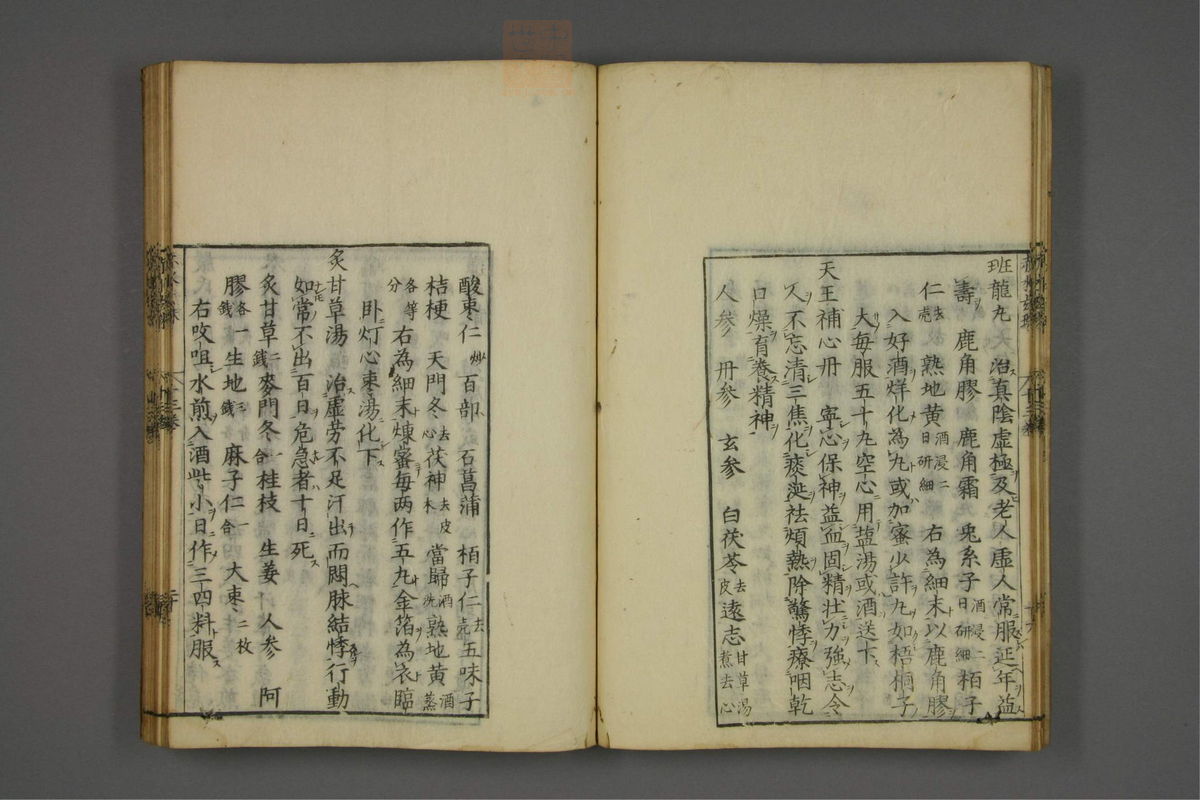 班龍丸 治真陰虛極及老人虛人常服延年益
壽 鹿角膠 鹿角霜 兎糸子酒浸二日研細 栢子
仁去壳 熟地黄酒浸二日研細 右為細末以鹿角膠
入好酒烊化為丸或加蜜少許丸如梧桐子
大每服五十丸空心用塩湯或酒送下
天王補心丹 寧心保神益血固精壮力強志令
人不忘清三焦化痰涎祛煩熱除驚悸療咽乾
口燥育養精神
人參 丹參 玄參 白茯苓去皮 遠志甘草湯煮去心
酸枣仁炒 百部 石菖蒲 栢子仁去壳 五味子
桔梗 天門冬去心 茯神去皮木 當歸酒洗 熟地黄酒蒸
各等分 右為細末煉蜜每両作五丸金箔為衣臨
卧灯心枣湯化下
炙甘草湯 治虛労不足汗出而悶脉結悸行動
如常不出百日危急者十日死
炙甘草二錢 麥門冬一合 桂枝 生姜 人參 阿
膠各一錢 生地三錢 麻子仁一合 大枣二枚
右㕮咀水煎入酒些小日作三四料服